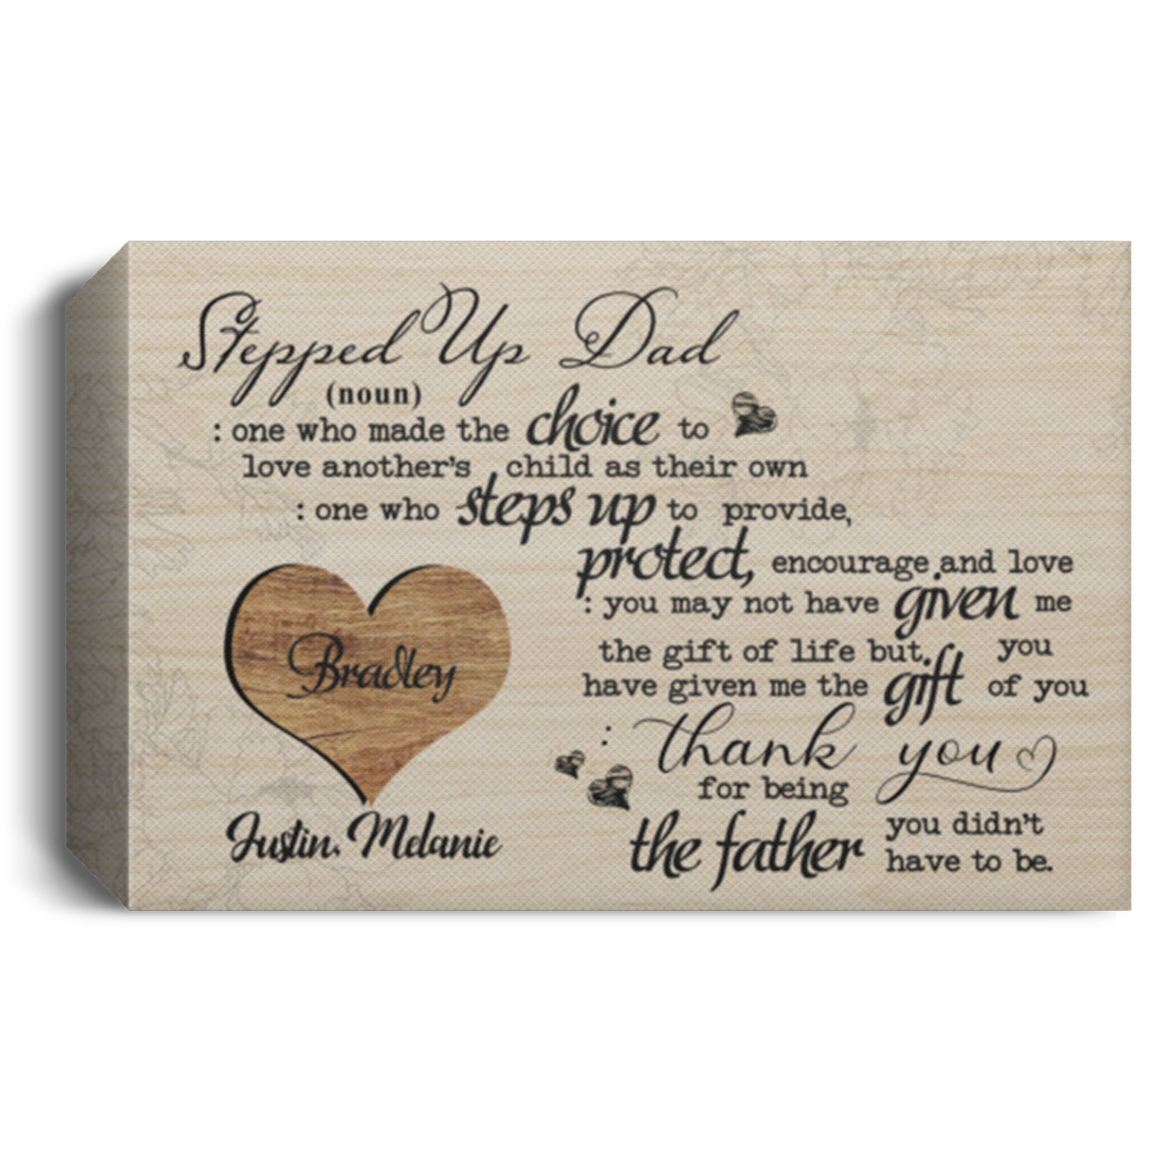 Stepped Up Dad
(noun)
: one who made the choice to
love another's child as their own
: one who steps up to provide,
protect, encourage and love
: you may not have given me
the gift of life but, you
have given me the gift of you
: thank you
for being
the father you didn't
have to be.
Bradley
Justin, Melanie